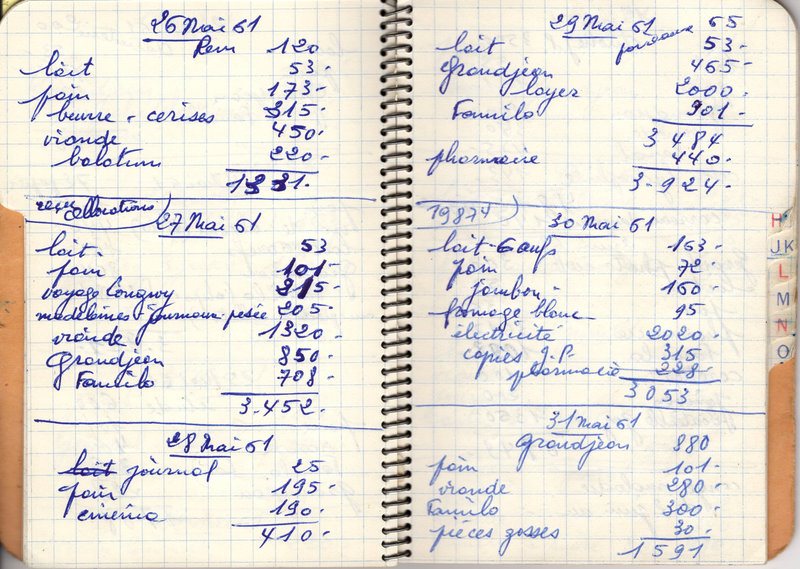 26 Mai 61
Rem 120
lait 53-
pain 173-
beurre - cerises 315-
viande 450-
balatum 220-
1331-
reçu allocations
27 Mai 61
lait - 53
pain 101-
voyage Longwy 215-
madeleines journaux pesée 205-
viande 1320
Grandjean 850-
Familo 708-
3.452-
28 Mai 61
lait journal 25
pain 195-
cinéma 190-
410-
29 Mai 61
journaux 65
lait 53-
Grandjean 465-
loyer 2000-
Familo 901-
3 484
pharmacie 440-
3-924-
19874
30 Mai 61
lait - 6 oeufs 163-
pain 72-
jambon - 160-
fromage blanc 95
électricité 2020-
copies J.P. 315
pharmacie 228-
3053-
31 Mai 61
grandjean 880
pain 101-
viande 280-
Familo 300-
pièces gosses 30-
1591
H
JK
L
M
N
O